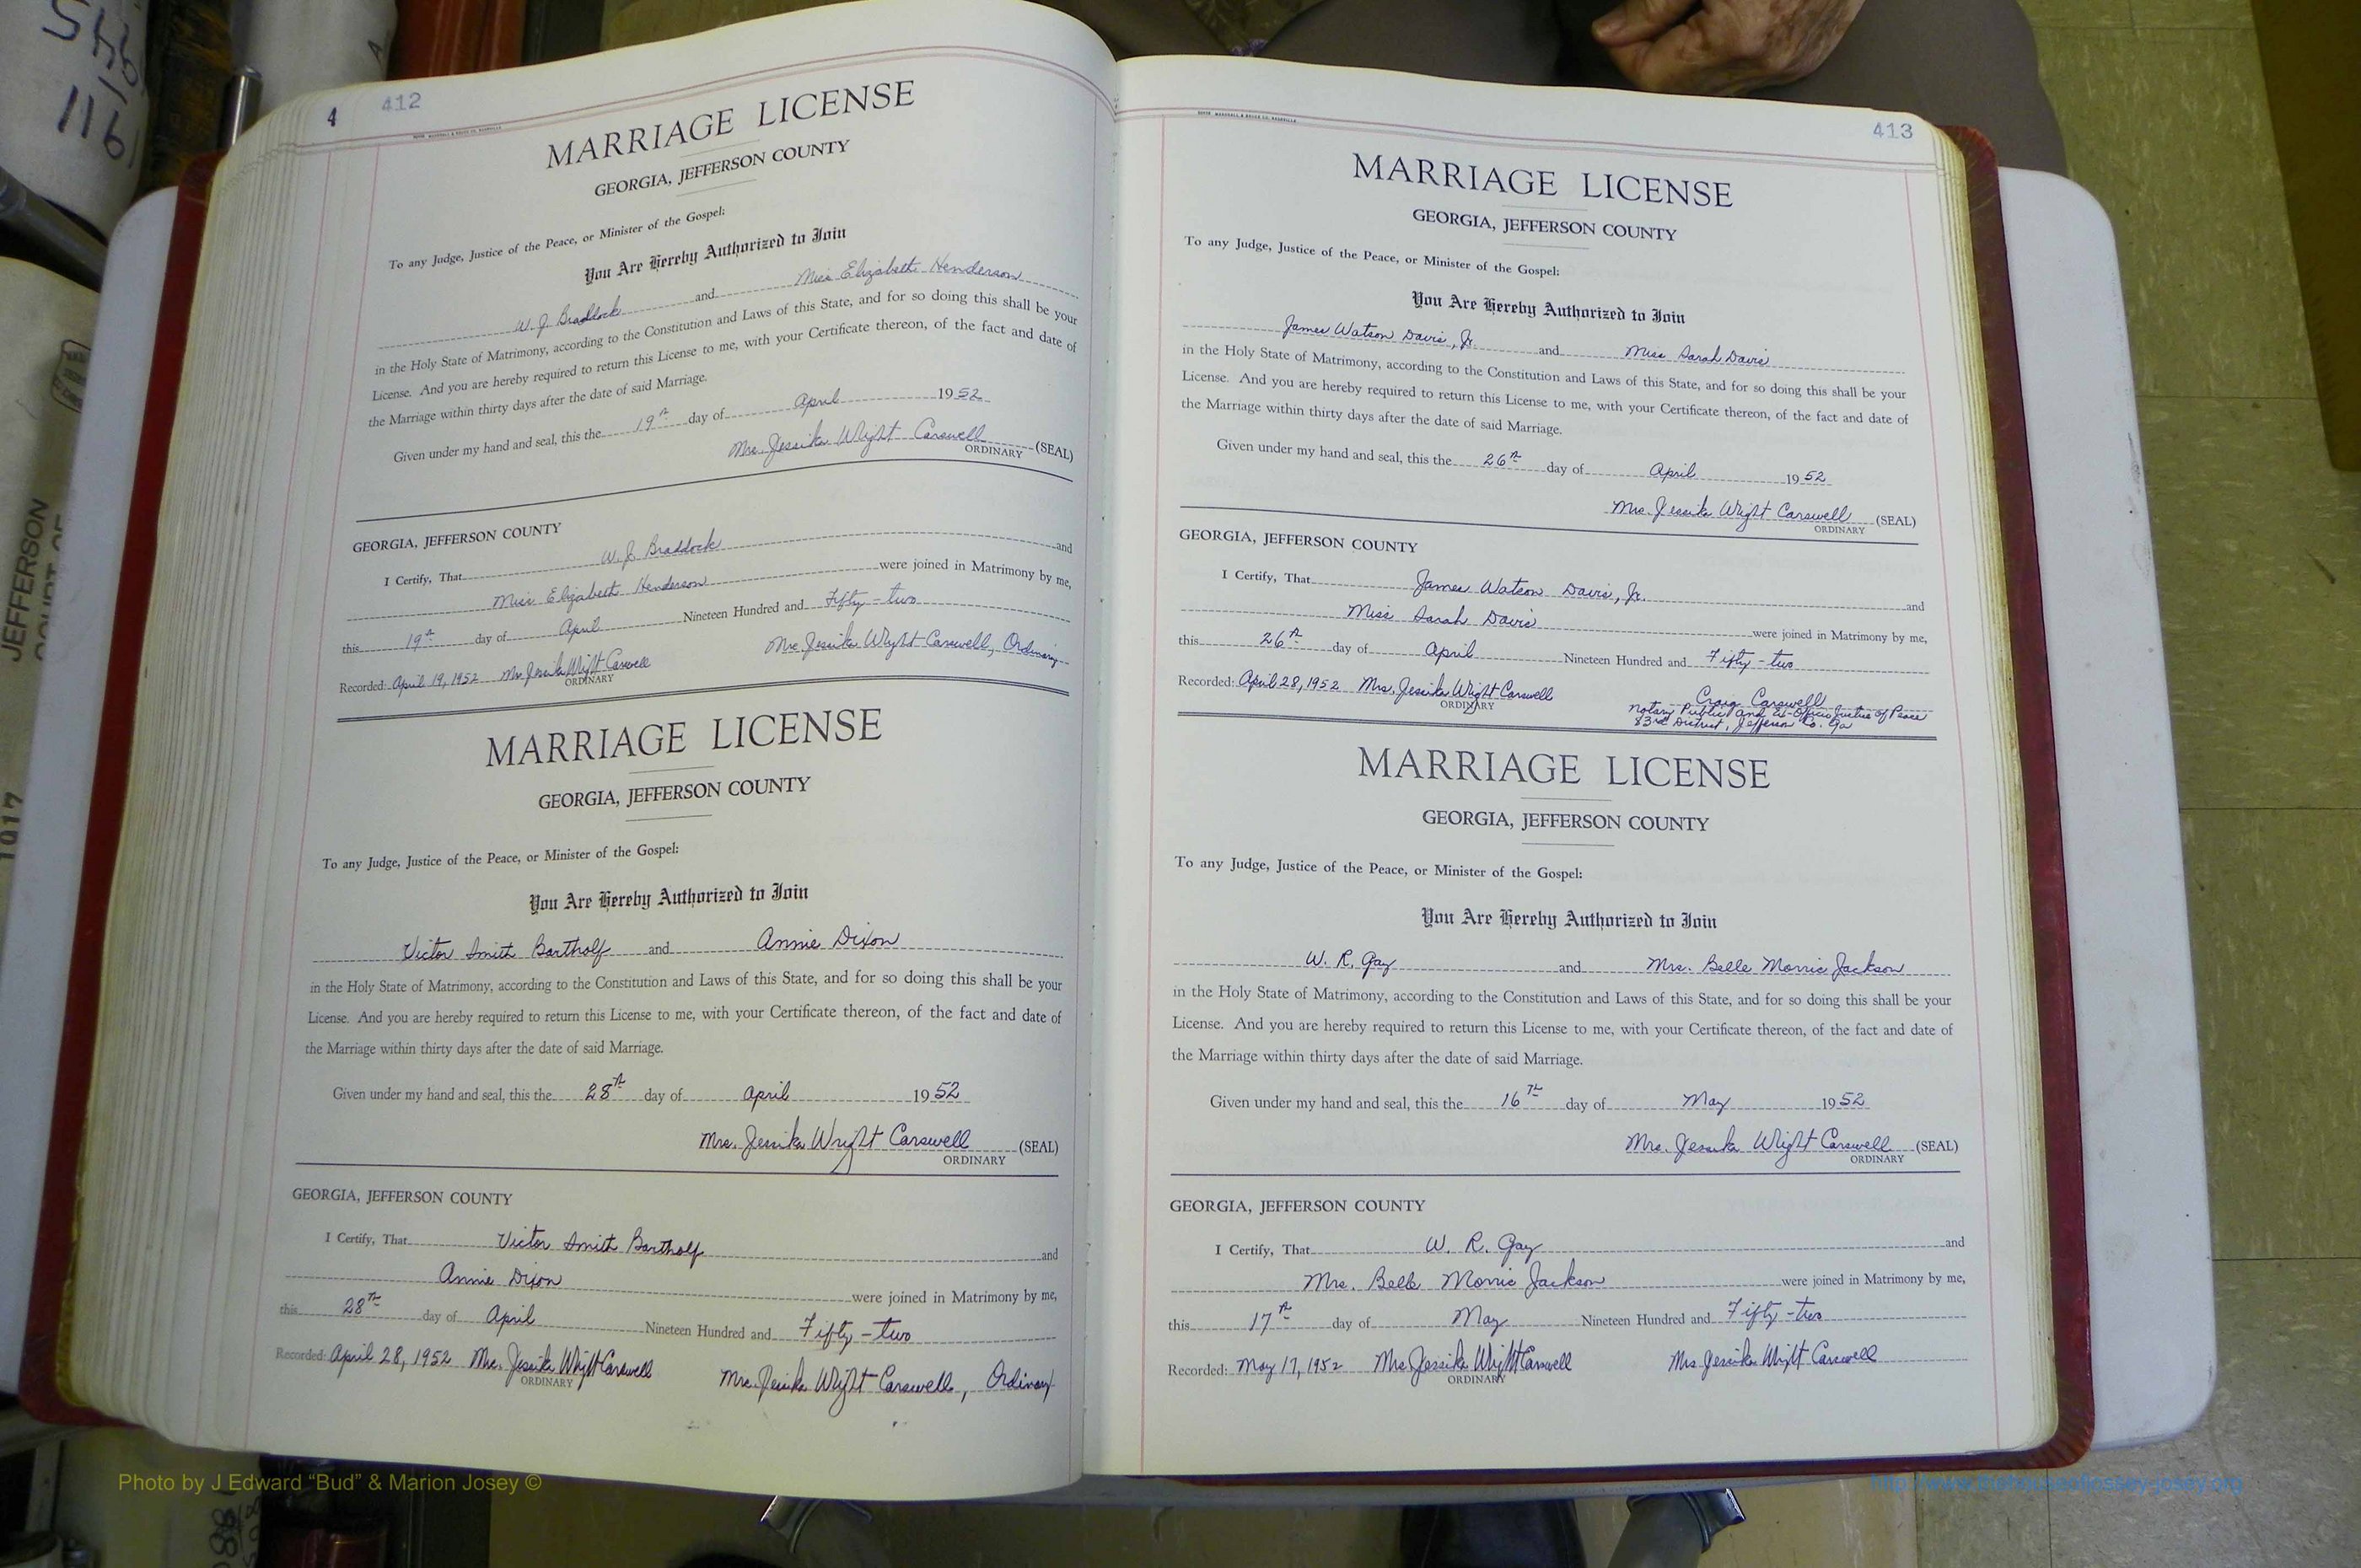 545
116
A
JEFFERSON
1917
4 412
MARRIAGE LICENSE
GEORGIA, JEFFERSON COUNTY
To any Judge, Justice of the Peace, or Minister of the Gospel:
You Are Hereby Authorized to Join
W. J. Braddock and Miss Elizabeth Henderson
in the Holy State of Matrimony, according to the Constitution and Laws of this State, and for so doing this shall be your
License. And you are hereby required to return this License to me, with your Certificate thereon, of the fact and date of
the Marriage within thirty days after the date of said Marriage.
Given under my hand and seal, this the 19th day of April 1952
Mrs. Jessika Wright Carswell (SEAL)
ORDINARY
GEORGIA, JEFFERSON COUNTY
I Certify, That W. J. Braddock and
Miss Elizabeth Henderson were joined in Matrimony by me,
this 19th day of April Nineteen Hundred and Fifty-two
Recorded: April 19, 1952 Mrs Jessika Wright Carswell Mrs. Jessika Wright Carswell, Ordinary
ORDINARY
MARRIAGE LICENSE
GEORGIA, JEFFERSON COUNTY
To any Judge, Justice of the Peace, or Minister of the Gospel:
You Are Hereby Authorized to Join
Victor Smith Bartholf and Annie Dixon
in the Holy State of Matrimony, according to the Constitution and Laws of this State, and for so doing this shall be your
License. And you are hereby required to return this License to me, with your Certificate thereon, of the fact and date of
the Marriage within thirty days after the date of said Marriage.
Given under my hand and seal, this the 28th day of April 1952
Mrs. Jessika Wright Carswell (SEAL)
ORDINARY
GEORGIA, JEFFERSON COUNTY
I Certify, That Victor Smith Bartholf and
Annie Dixon were joined in Matrimony by me,
this 28th day of April Nineteen Hundred and Fifty-two
Recorded: April 28, 1952 Mrs. Jessika Wright Carswell Mrs. Jessika Wright Carswell, Ordinary
ORDINARY
413
MARRIAGE LICENSE
GEORGIA, JEFFERSON COUNTY
To any Judge, Justice of the Peace, or Minister of the Gospel:
You Are Hereby Authorized to Join
James Watson Davis, Jr. and Miss Sarah Davis
in the Holy State of Matrimony, according to the Constitution and Laws of this State, and for so doing this shall be your
License. And you are hereby required to return this License to me, with your Certificate thereon, of the fact and date of
the Marriage within thirty days after the date of said Marriage.
Given under my hand and seal, this the 26th day of April 1952
Mrs. Jessika Wright Carswell (SEAL)
ORDINARY
GEORGIA, JEFFERSON COUNTY
I Certify, That James Watson Davis, Jr. and
Miss Sarah Davis were joined in Matrimony by me,
this 26th day of April Nineteen Hundred and Fifty-two
Recorded: April 28, 1952 Mrs. Jessika Wright Carswell Craig Carswell
ORDINARY Notary Public and Ex-Officio Justice of Peace
83rd District, Jefferson Co. Ga
MARRIAGE LICENSE
GEORGIA, JEFFERSON COUNTY
To any Judge, Justice of the Peace, or Minister of the Gospel:
You Are Hereby Authorized to Join
W. R. Gay and Mrs. Belle Morris Jackson
in the Holy State of Matrimony, according to the Constitution and Laws of this State, and for so doing this shall be your
License. And you are hereby required to return this License to me, with your Certificate thereon, of the fact and date of
the Marriage within thirty days after the date of said Marriage.
Given under my hand and seal, this the 16th day of May 1952
Mrs. Jessika Wright Carswell (SEAL)
ORDINARY
GEORGIA, JEFFERSON COUNTY
I Certify, That W. R. Gay and
Mrs. Belle Morris Jackson were joined in Matrimony by me,
this 17th day of May Nineteen Hundred and Fifty-two
Recorded: May 17, 1952 Mrs. Jessika Wright Carswell Mrs. Jessika Wright Carswell
ORDINARY
Photo by J Edward “Bud” & Marion Josey ©
http://www.thehouseofjossey-josey.org